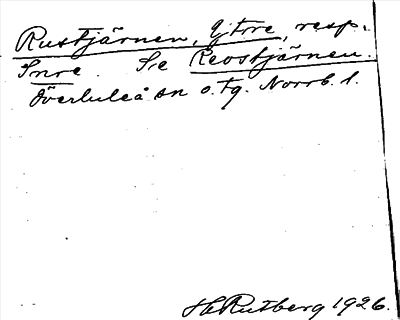 Rustjärnen, Yttre, resp.
Inre. Se Reostjärnen.
Överluleå sn o. tg. Norrb. l.
H Rutberg 1926.